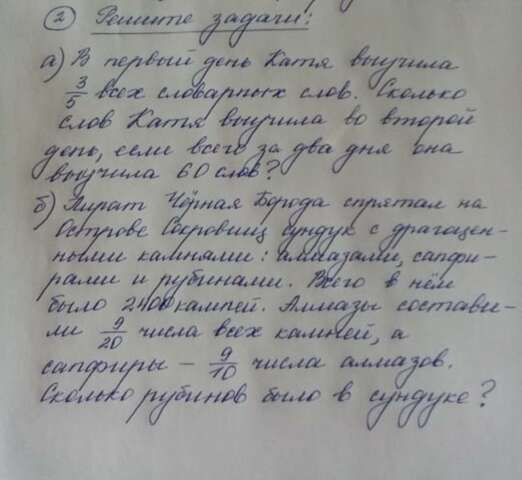 2 Решите задачи:
а) В первый день Катя выучила
3/5 всех словарных слов. Сколько
слов Катя выучила во второй
день, если всего за два дня она
выучила 60 слов?
б) Пират Чёрная Борода спрятал на
Острове Сокровищ сундук с драгоцен-
ными камнями: алмазами, сапфи-
рами и рубинами. Всего в нём
было 2400 камней. Алмазы состави-
ли 9/20 числа всех камней, а
сапфиры – 9/10 числа алмазов.
Сколько рубинов было в сундуке?